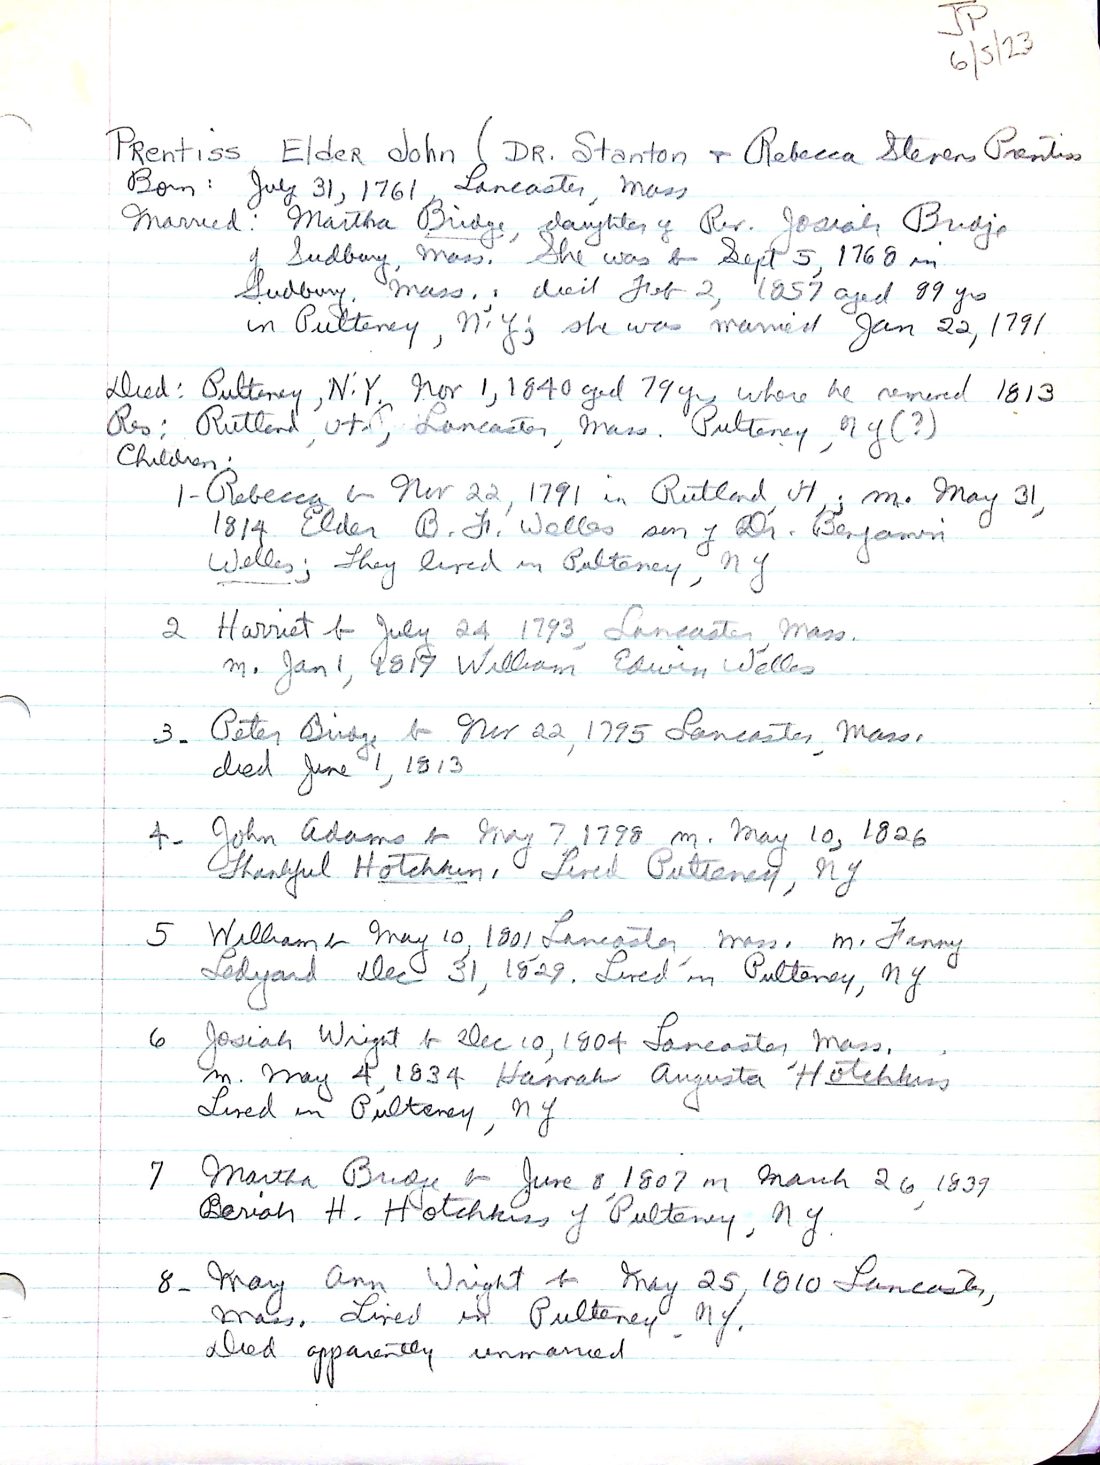 JP
6/5/23
Prentiss Elder John ( DR. Stanton + Rebecca Stevens Prentiss
Born: July 31, 1761, Lancaster, Mass
Married: Martha Bridge, daughter of Rev. Josiah Bridge
of Sudbury, Mass. She was b Sept 5, 1768 in
Sudbury, Mass.; died Feb 2, 1857 aged 89 yrs
in Pulteney, N.Y; she was married Jan 22, 1791
Died: Pulteney, N.Y. Nov 1, 1840 aged 79 yrs where he removed 1813
Res: Rutland, Vt, Lancaster, Mass. Pulteney, NY (?)
Children:
1- Rebecca b Nov 22, 1791 in Rutland, Vt,; m. May 31,
1814 Elder B. F. Welles son of Dr. Benjamin
Welles; They lived in Pulteney, NY
2 Harriet b July 24, 1793, Lancaster, Mass.
m. Jan 1, 1817 William Edwin Welles
3- Peter Bridge b Nov 22, 1795 Lancaster, Mass.
died June 1, 1813
4- John Adams b May 7, 1798 m. May 10, 1826
Thankful Hotchkin. Lived Pulteney, NY
5 William b May 10, 1801 Lancaster, Mass. m. Fanny
Ledyard Dec 31, 1829. Lived in Pulteney, NY
6 Josiah Wright b Dec 10, 1804 Lancaster, Mass.
m. May 4, 1834 Hannah Augusta Hotchkiss
Lived in Pulteney, NY
7 Martha Bridge b June 8, 1807 m March 26, 1839
Beriah H. Hotchkiss of Pulteney, NY.
8- Mary Ann Wright b May 25, 1810 Lancaster,
Mass. Lived in Pulteney, NY.
Died apparently unmarried